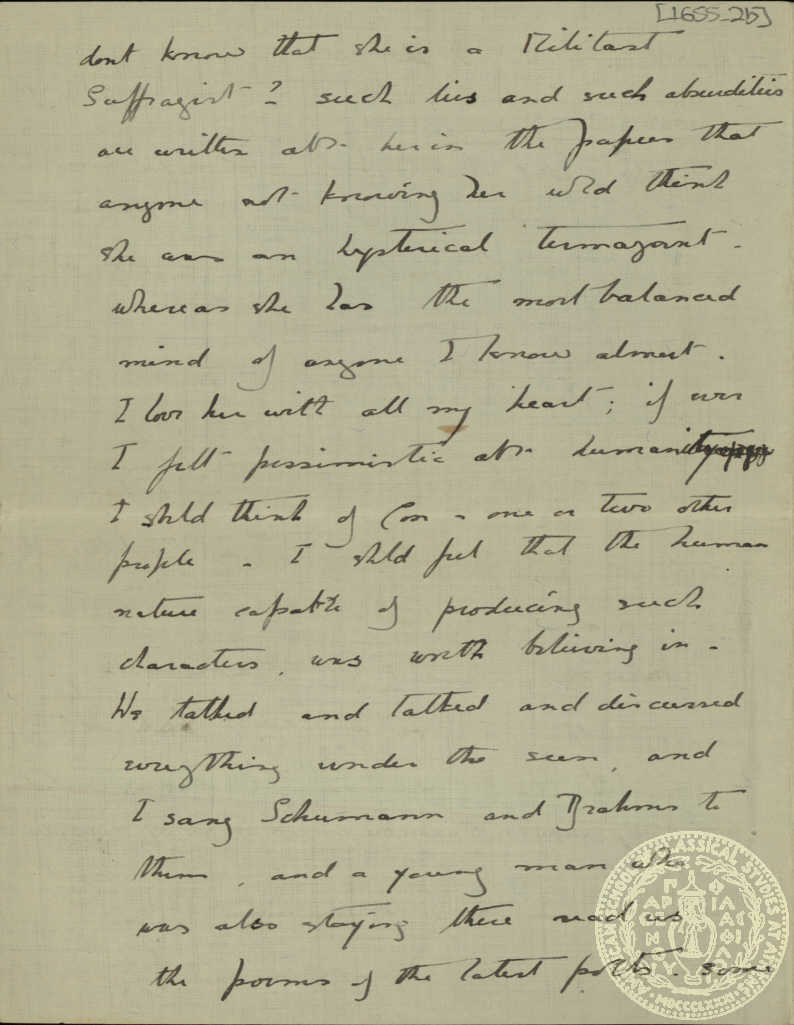 [1655-2b]
dont know that she is a Militant
Suffragist? such lies and such absurdities
are written abt her in the papers that
anyone not knowing her wld think
she was an hysterical termagant -
whereas she has the most balanced
mind of anyone I know almost.
I love her with all my heart; if ever
I felt pessimistic abt humanity
I shld think of Con - one or two other
people - I shld feel that the human
nature capable of producing such
characters, was worth believing in -
We talked and talked and discussed
everything under the sun, and
I sang Schumann and Brahms to
them, and a young man who
was also staying there read us
the poems of the latest poets - some
AMERICAN SCHOOL OF CLASSICAL STUDIES AT ATHENS
MDCCCLXXXI